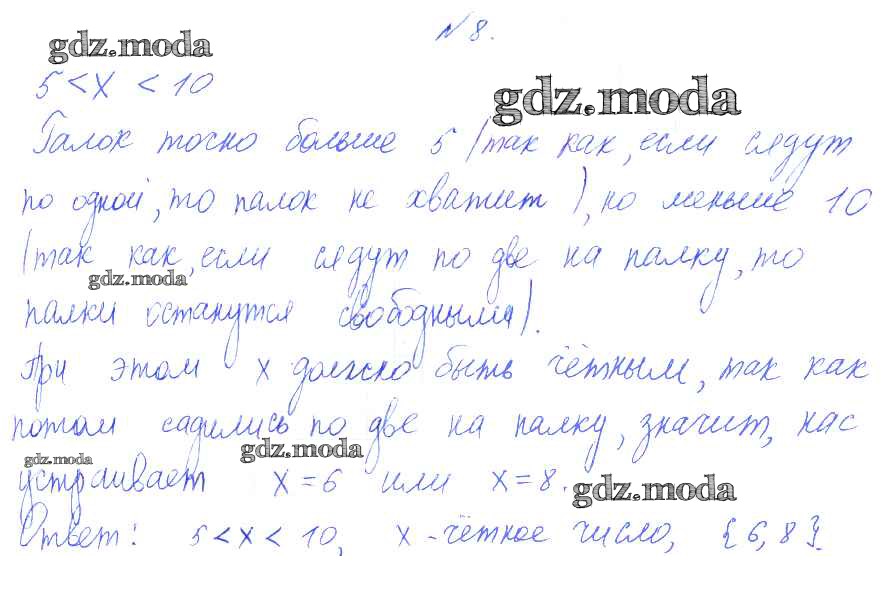 N 8.
gdz.moda
5 < x < 10
gdz.moda
Галок точно больше 5 (так как, если сядут
по одной, то палок не хватит), но меньше 10
(так как, если сядут по две на палку, то
gdz.moda
палки останутся свободными).
При этом x должно быть чётным, так как
потом садились по две на палку, значит, нас
gdz.moda
gdz.moda
устраивает x = 6 или x = 8.
gdz.moda
Ответ: 5 < x < 10, x - чётное число, {6, 8}.